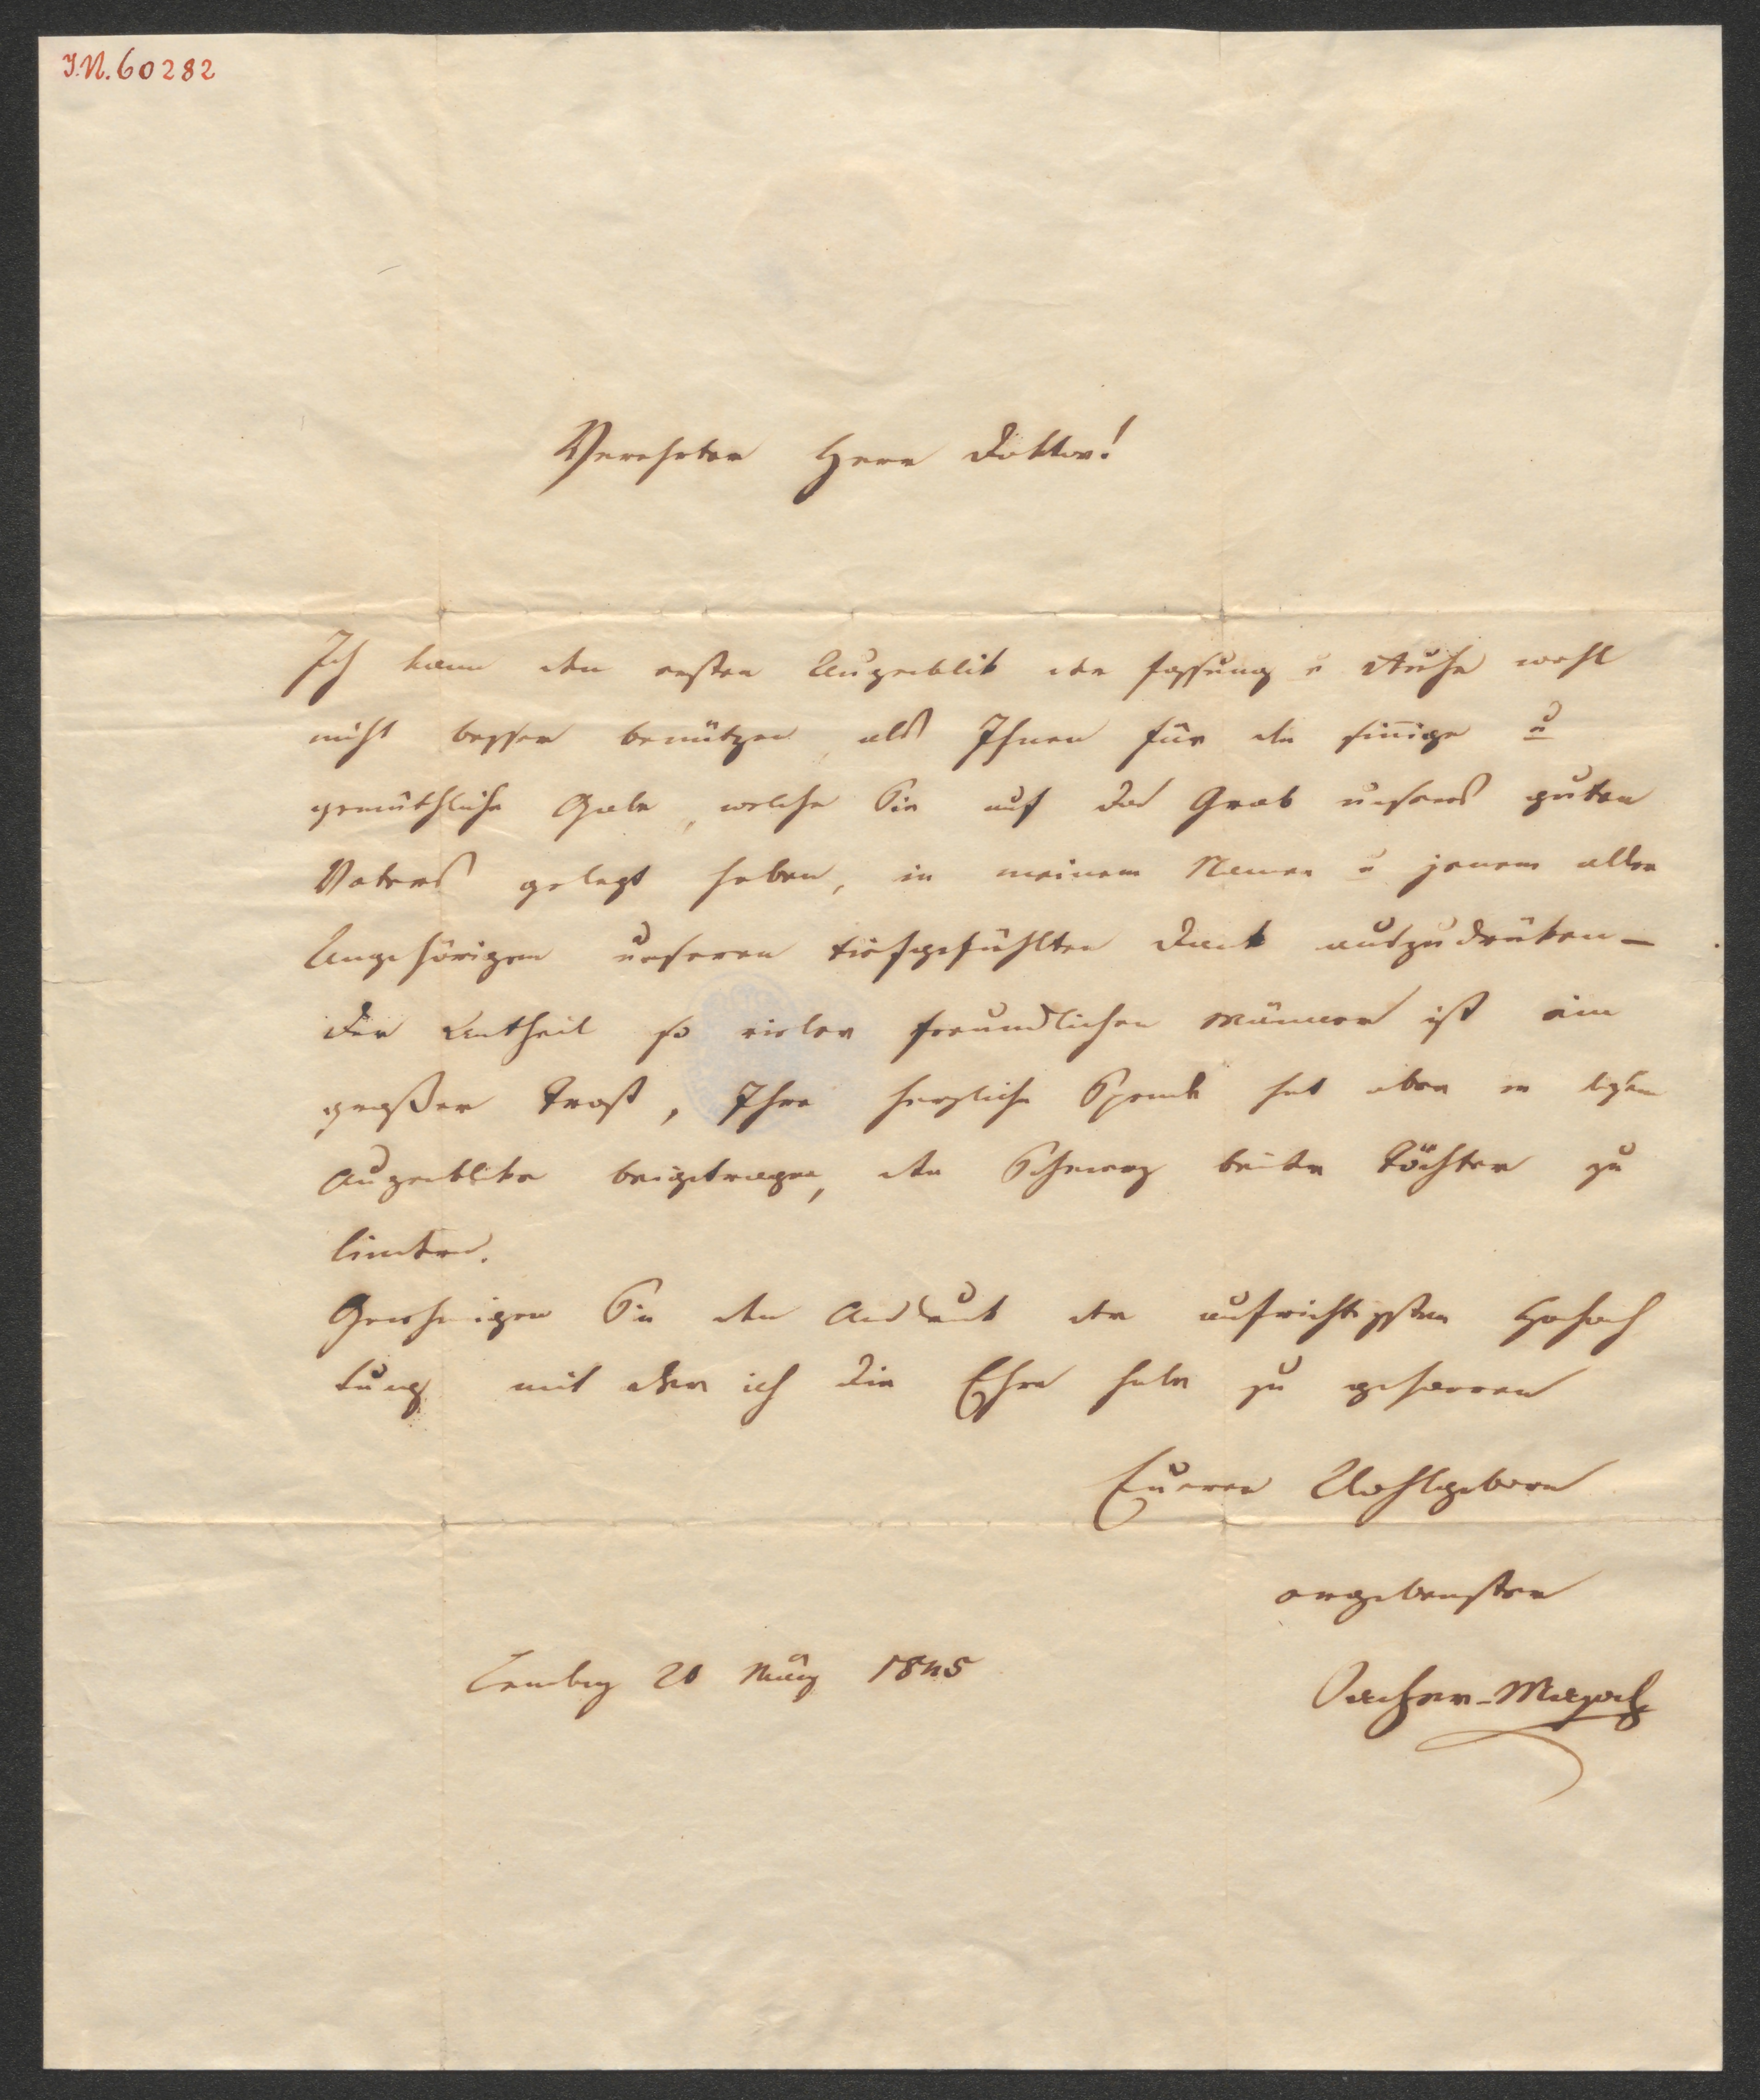 I.N. 60282
Verehrter Herr Doktor!
Ich kann den ersten Augenblik der Fassung u Ruhe wohl
nicht besser benützen, als Ihnen für die sinnige u
gemüthliche Gabe, welche Sie auf das Grab unseres guten
Vaters gelegt haben, in meinem Namen u jenem aller
Angehörigen unseren tiefgefühlten Dank auszudrüken –
Der Antheil so vieler freundlichen Männer ist ein
großer Trost, Ihre herzliche Spende hat aber in
Augenblike beigetragen, den Schmerz beider Töchter zu
lindern.
Genehmigen Sie den Ausdruk der aufrichtigsten Hochach
tung mit der ich die Ehre habe zu geharren
Euerer Wohlgeboren
ergebenster
Lemberg 20 März 1845
Sacher-Masoch